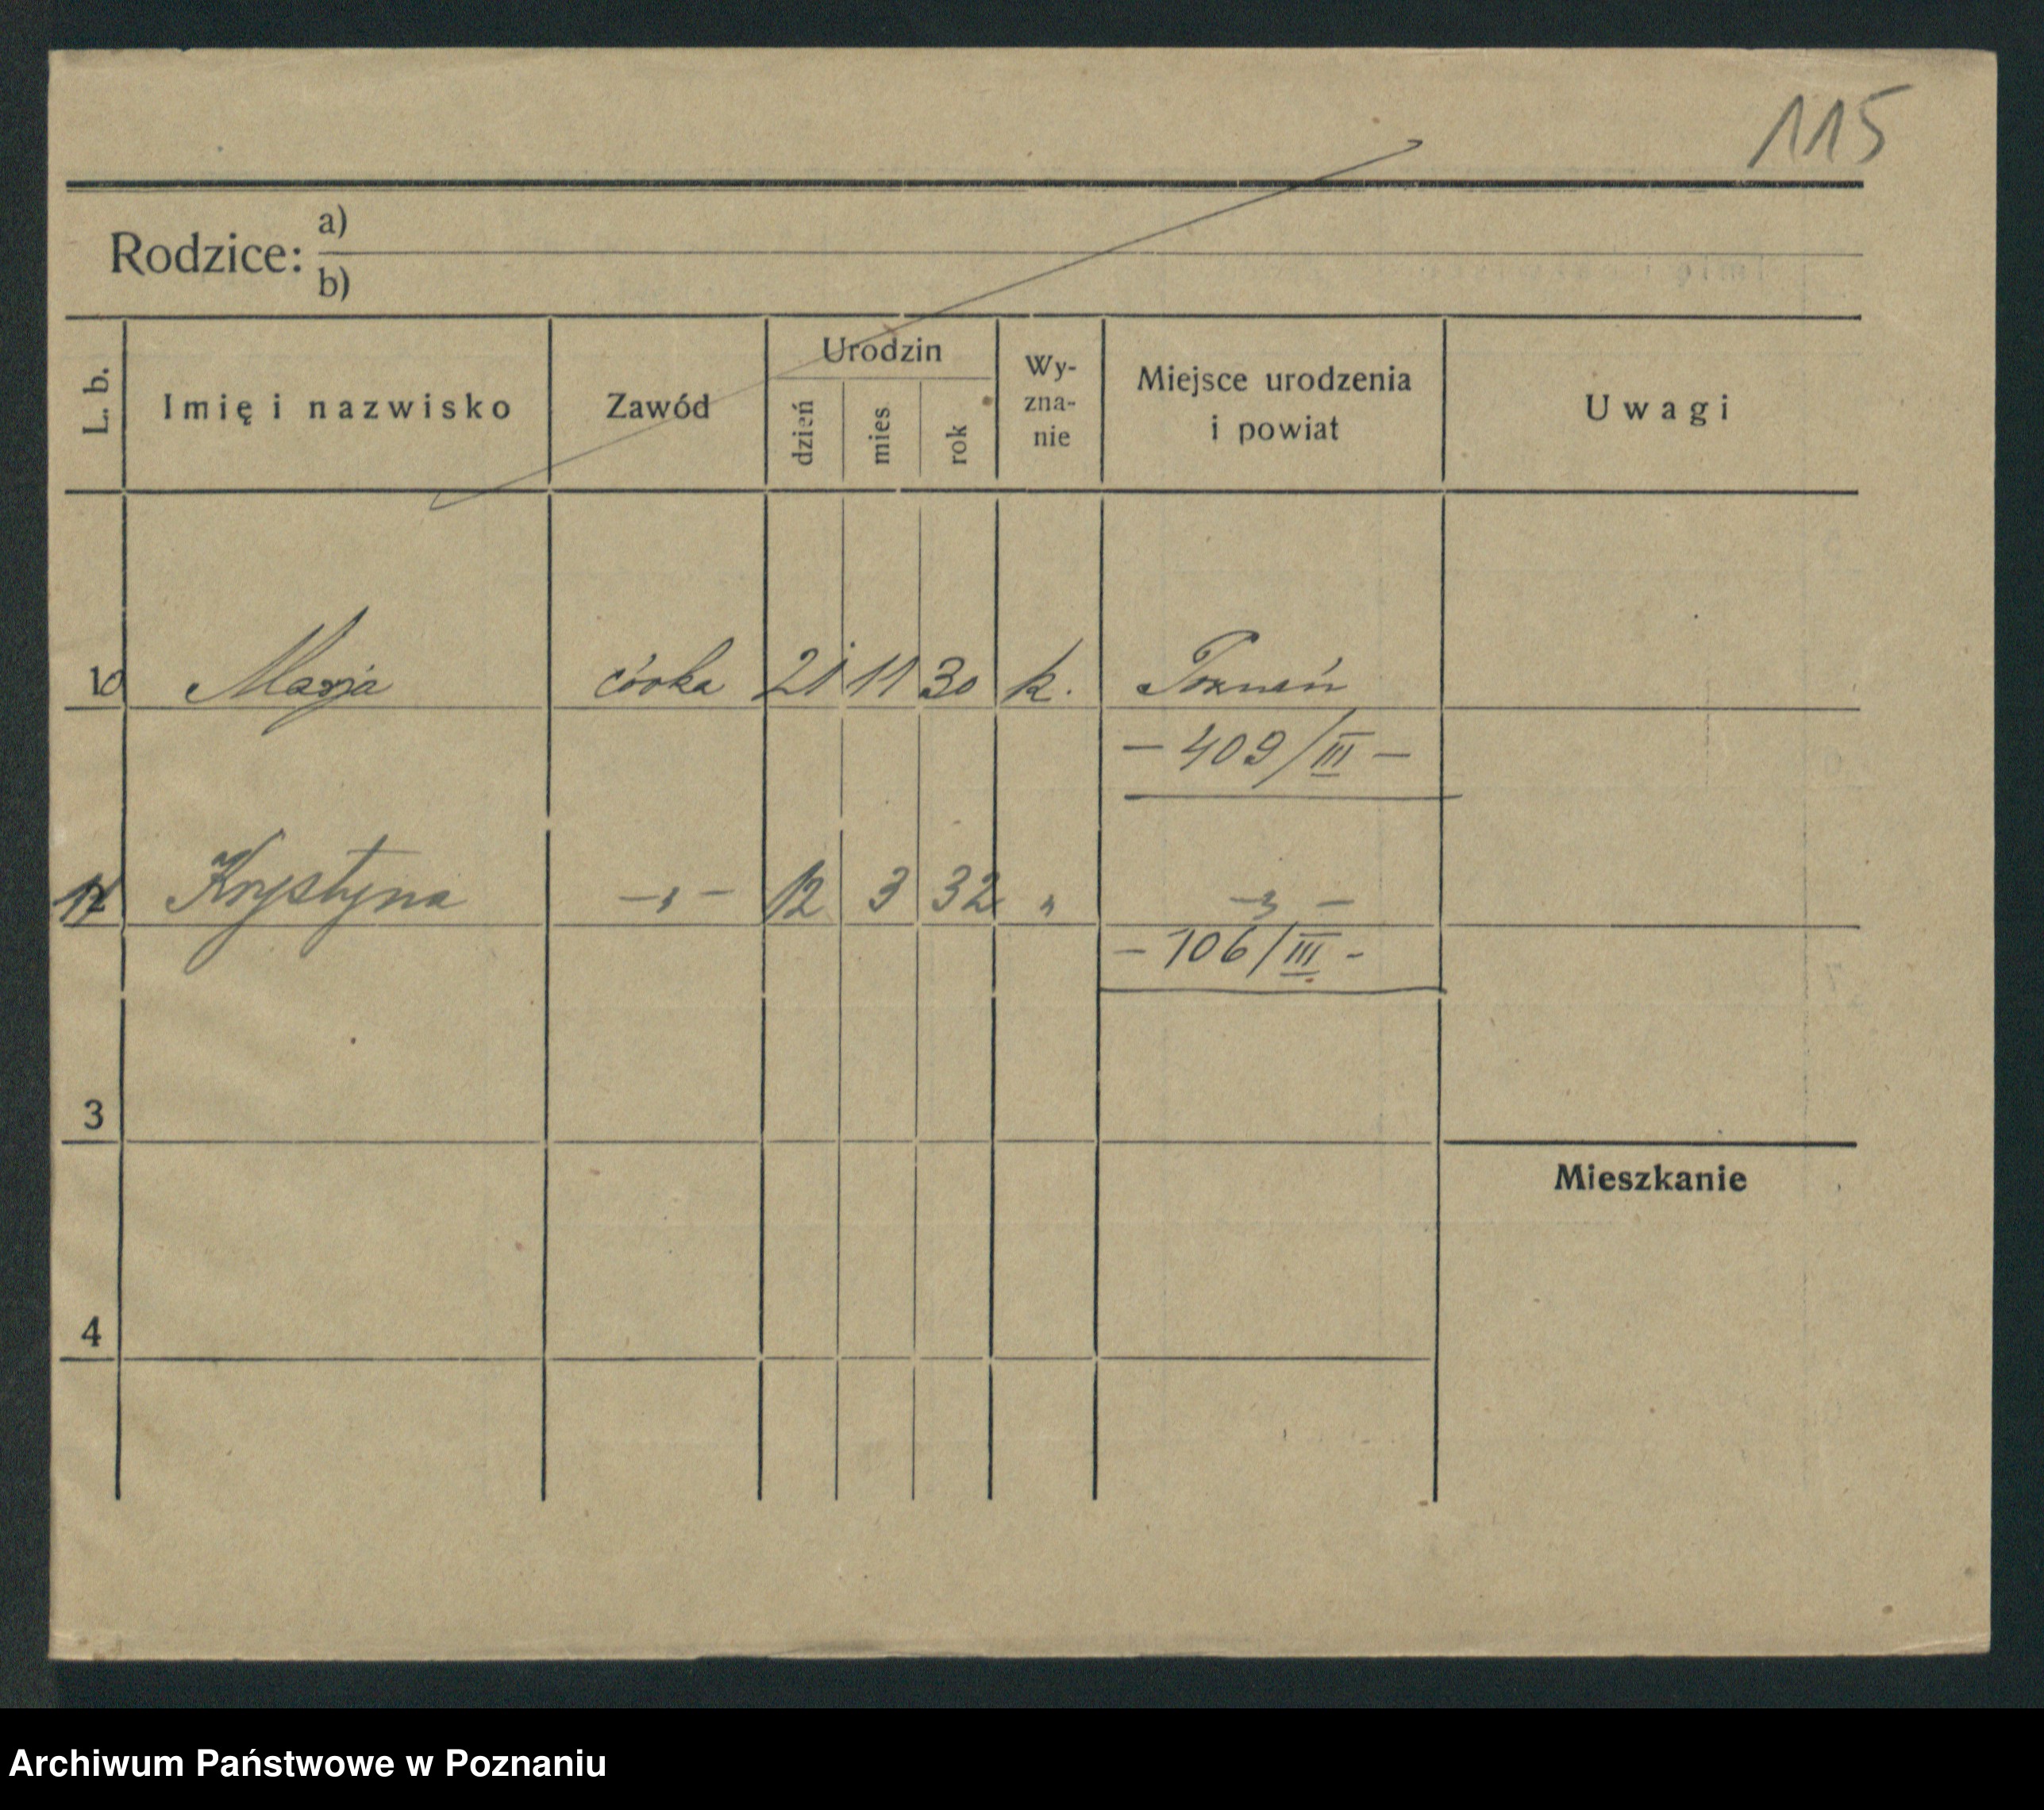 115
Rodzice: a)
b)
L. b. Imię i nazwisko Zawód Urodzin dzień mies rok Wy-zna-nie Miejsce urodzenia i powiat Uwagi
10 Marja córka 21 11 30 k. Poznań
- 409/III -
11 Krystyna -„- 12 3 32 „ -„-
- 106/III -
3
Mieszkanie
4
Archiwum Państwowe w Poznaniu